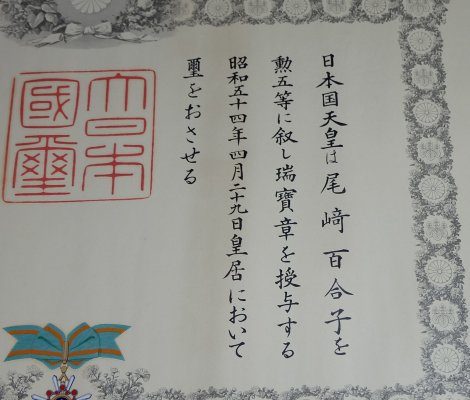 日本国天皇は尾﨑百合子を
勲五等に叙し瑞寶章を授与する
昭和五十四年四月二十九日皇居において
璽をおさせる
大日本
國璽